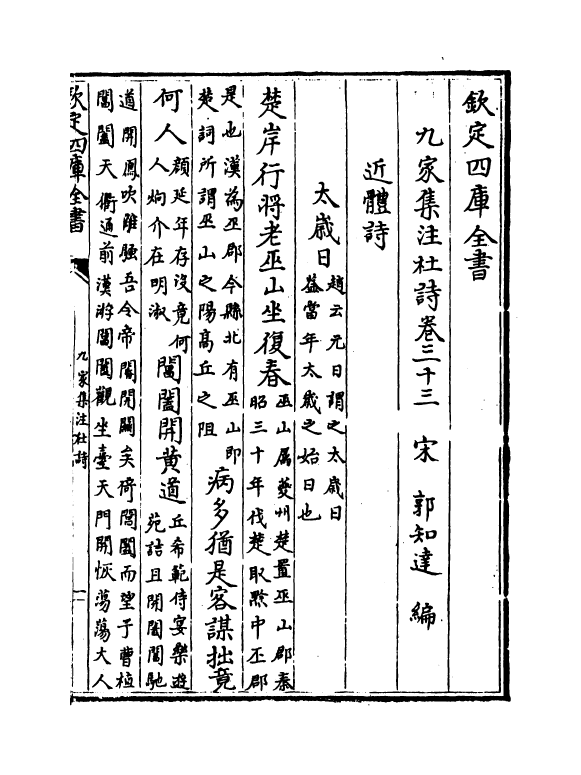 欽定四庫全書
九家集注杜詩卷三十三　宋　郭知達　編
近體詩
太歲日
趙云元日謂之太歲日
葢當年太歲之始日也
楚岸行將老巫山坐復春
巫山屬夔州楚置巫山郡秦
昭三十年伐楚取黔中巫郡
是也漢為巫郡今縣北有巫山即
楚詞所謂巫山之陽高丘之阻
病多猶是客謀拙竟
何人
顔延年存沒竟何
人炯介在明淑
閶闔開黄道
丘希範侍宴樂遊
苑詰且開閶闔馳
道聞鳳吹離騷吾令帝閽開關矣倚閶闔而望予曹植
閶闔天衢通前漢將閶闔觀坐臺天門開恢蕩蕩大人
欽定四庫全書
九家集注杜詩
一